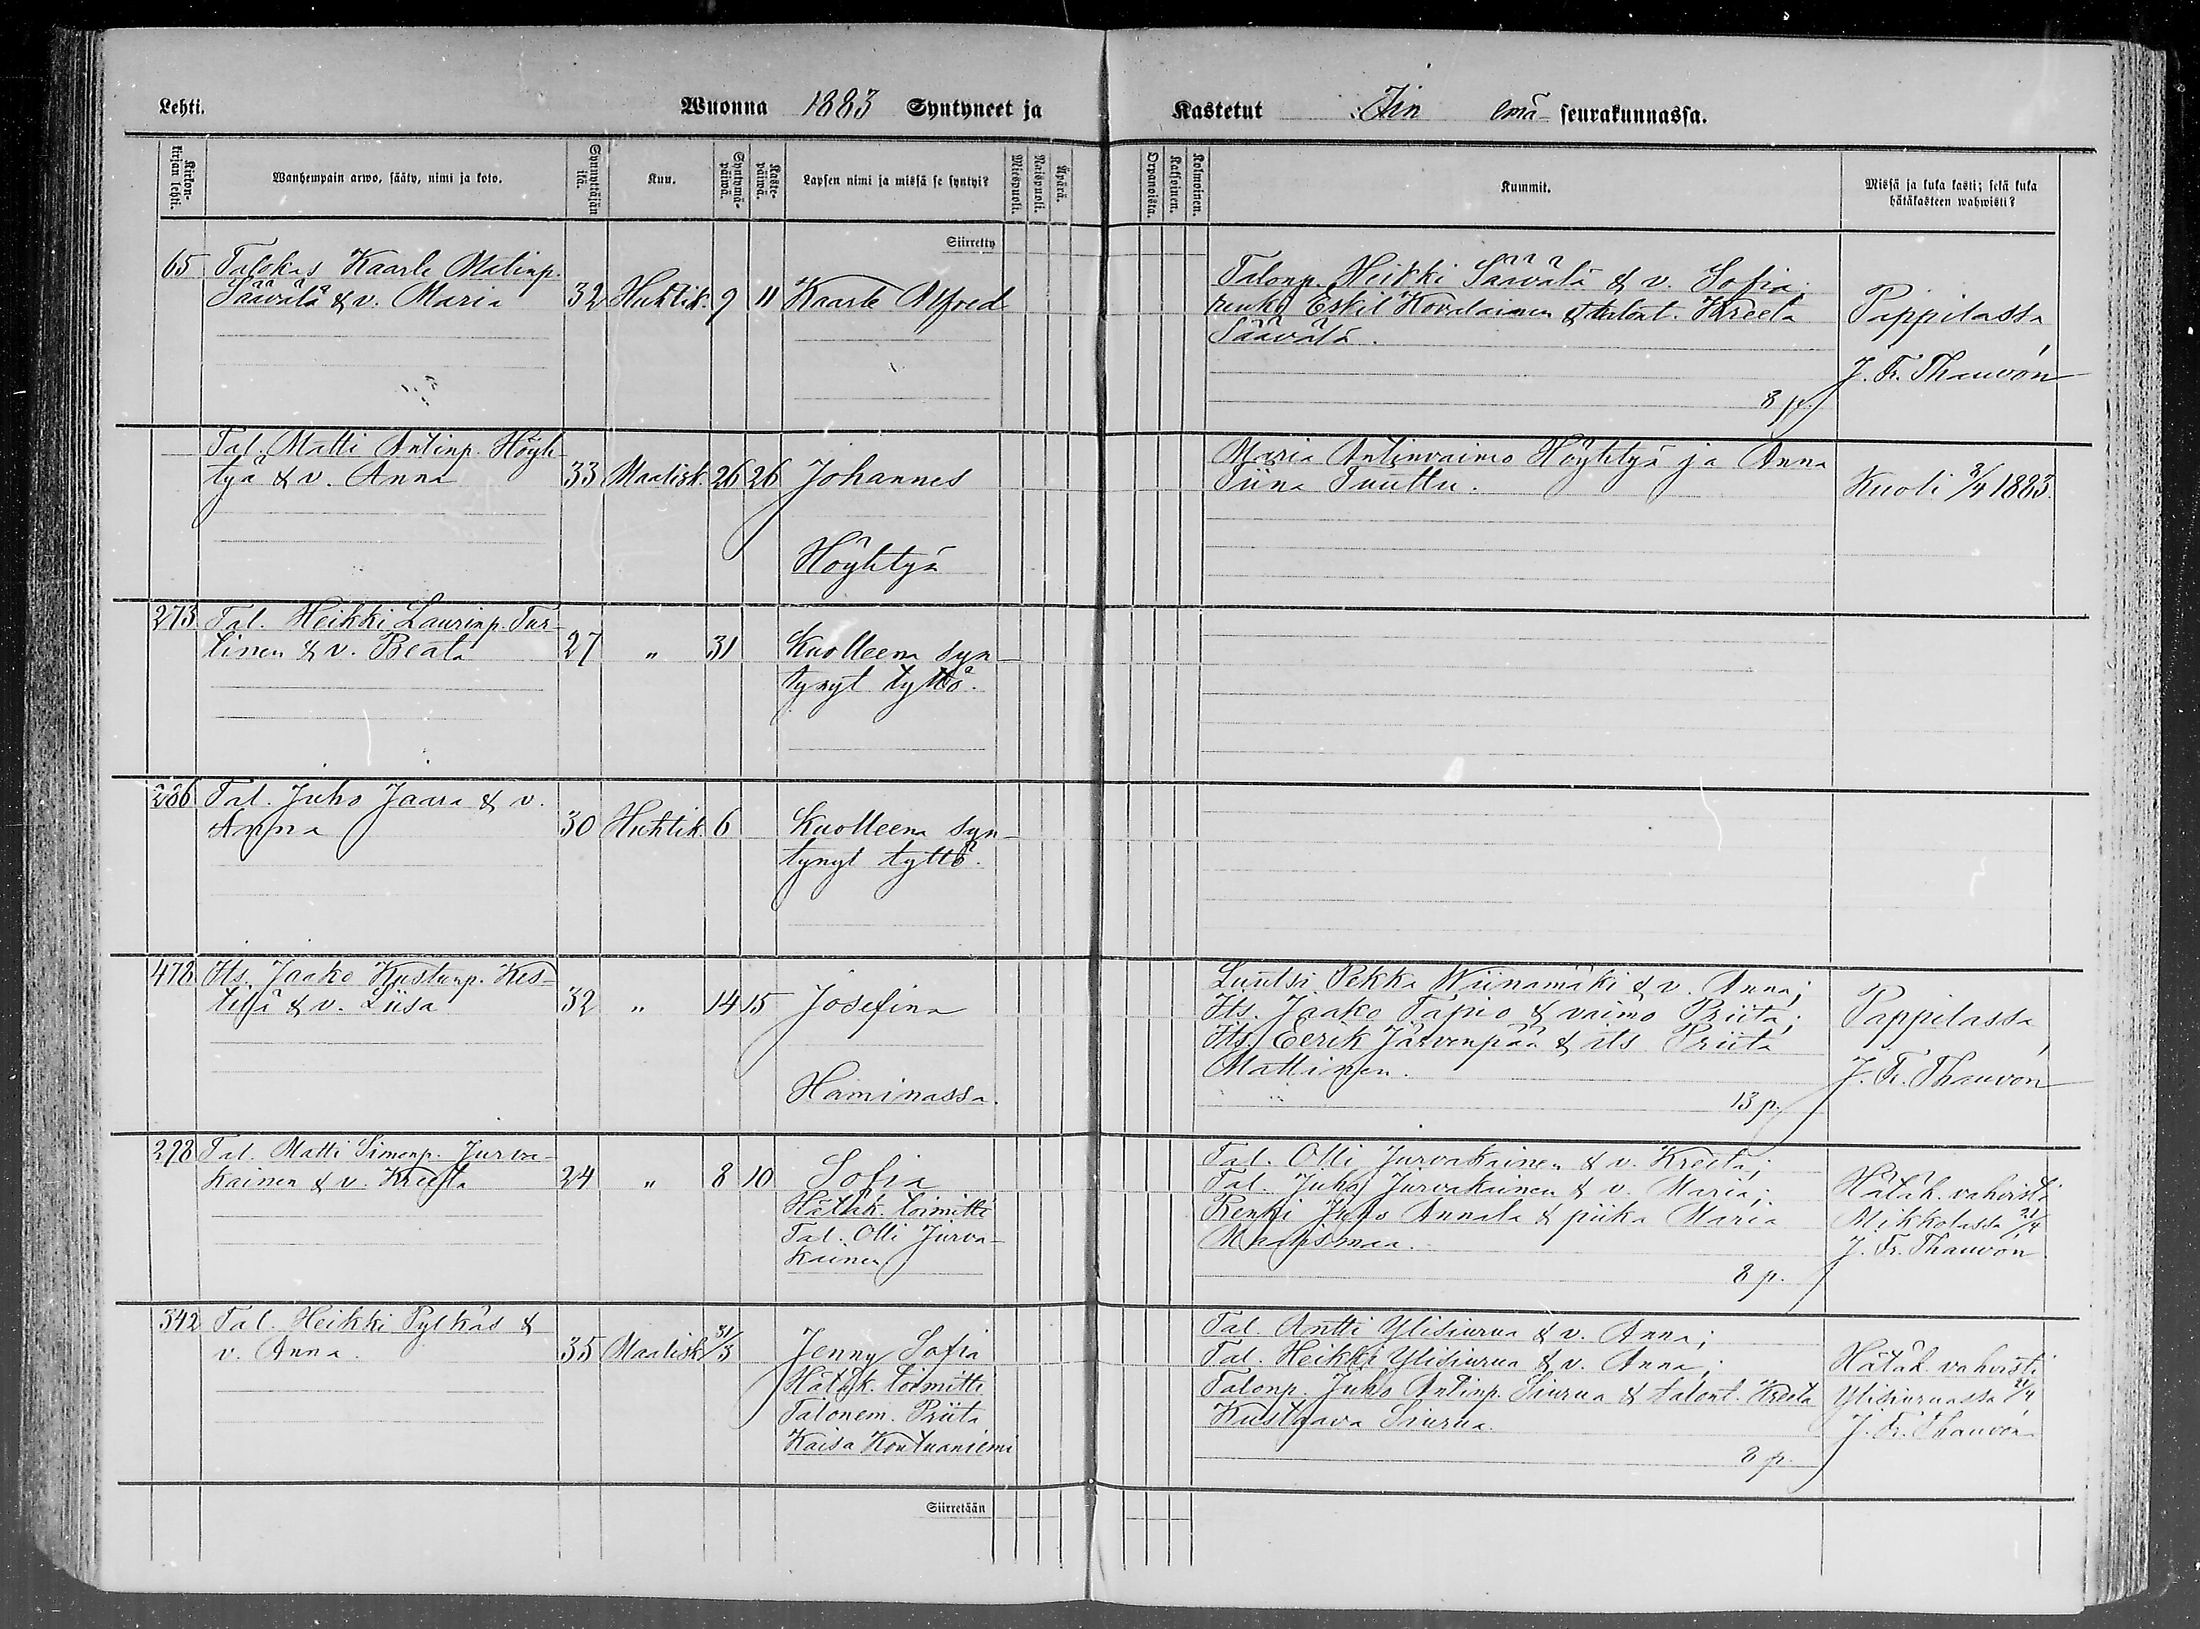 Lehti.
Wuonna 1883 Syntyneet ja
Kastetut Iin emä- seurakunnassa.
Kirkon-
kirjan lehti.
Wanhempain arwo, sääty, nimi ja koto.
Synnyttäjän
ikä.
Kuu.
Syntymä-
päiwä.
Kaste-
päiwä.
Lapsen nimi ja missä se syntyi?
Miespuoli.
Naispuoli.
Äpärä.
Orpanoista.
Kaksoinen.
Kolmoinen.
Kummit.
Missä ja kuka kasti; sekä kuka
hätäkasteen wahwisti?
Siirretty
65 Talokas Kaarle Matinp.
Säävälä & v. Maria 32 Huhtik. 9 11 Kaarle Alfred
Talonp. Heikki Säävälä & v. Sofia;
renki Eskil Kovalainen & talont. Kreeta
Säävälä.
8 p.
Pappilassa,
J. Fr. Thauvón
Tal. Matti Antinp. Höyh-
tyä & v. Anna 33 Maalisk. 26 26 Johannes
Höyhtyä
Maria Antinvaimo Höyhtyä ja Anna
Tiina Tuuttu.
Kuoli 3/4 1883.
273 Tal. Heikki Laurinp. Tur-
tinen & v. Beata 27 " 31 Kuolleena syn-
tynyt tyttö.
286 Tal. Juho Jaara & v.
Anna 30 Huhtik. 6 Kuolleena syn-
tynyt tyttö.
478 Its. Jaako Kustunp. Kes-
tilä & v. Liisa 32 " 14 15 Josefina
Haminassa.
Luutsi Pekka Wiinamäki & v. Anna;
Its. Jaako Tapio & vaimo Priita;
Its. Eerik Järvenpää & its. Priita
Mattinen.
13 p.
Pappilassa,
J. Fr. Thauvón
298 Tal. Matti Simonp. Jurva-
kainen & v. Kreeta 24 " 8 10 Sofia
Hätäk. toimitti
Tal. Olli Jurva-
kainen
Tal. Olli Jurvakainen & v. Kreeta;
Tal. Juho Jurvakainen & v. Maria;
Renki Juho Annala & piika Maria
8 p.
Hätäk. vahvisti
Mikkolassa 21/4
J. Fr. Thauvón
342 Tal. Heikki Pylkäs &
v. Anna. 35 Maalisk. 31/3 Jenny Sofia
Hätäk. toimitti
Talonem. Priita
Kaisa Kontuaniemi
Tal. Antti Ylisiurua & v. Anna;
Tal. Heikki Ylisiurua & v. Anna;
Talonp. Juho Antinp. Siurua & talont. Kreeta
Kustaava Siurua.
8 p.
Hätäk. vahvisti
Ylisiuruassa 21/4
J. Fr. Thauvón
Siirretään